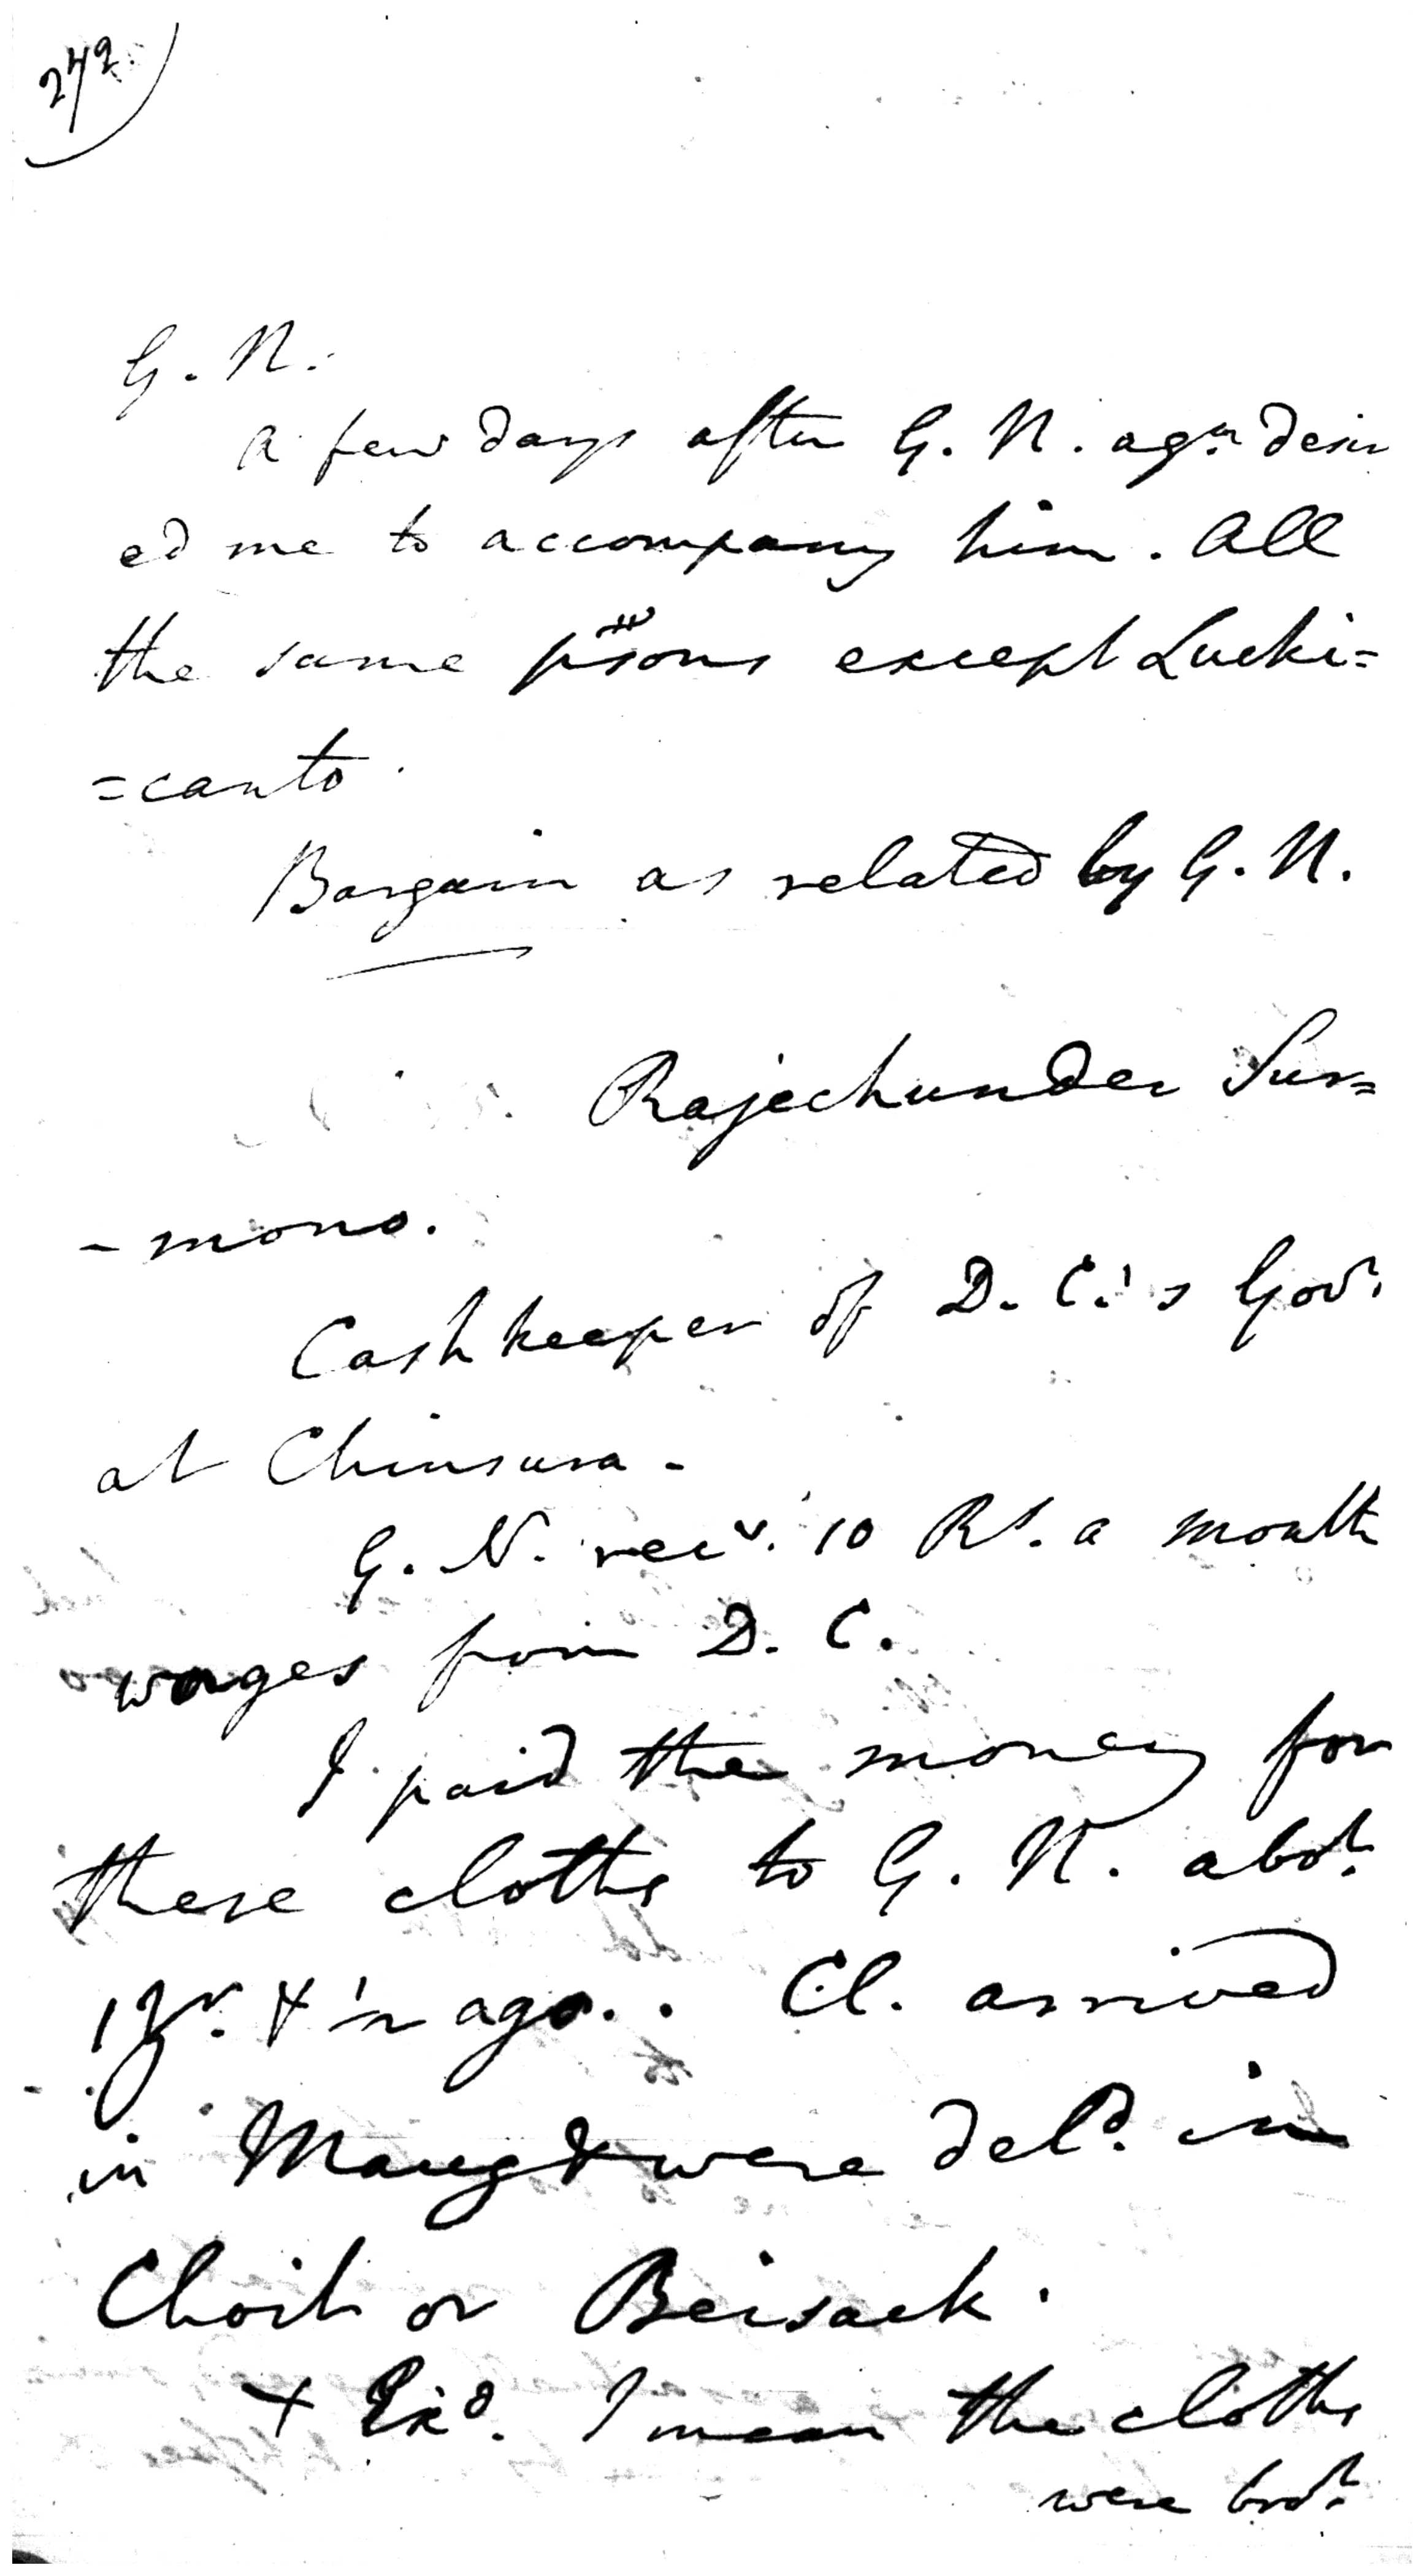 272
G. N.
A few days after G. N. agn. desir
ed me to accompany him. All
the same psons except Lucki=
=canto.
Bargain as related by G. N.
Rajechunder Sur=
- mono.
Cashkeeper of D. C.'s Govt.
at Chinsura -
G. N. recv. 10 Rs. a month
wages from D. C.
I paid the money for
these cloths to G. N. abot.
1 yr. & 1/2 ago.. Cl. arrived
in Maug & were deld. in
Choit or Beisack.
+ Exd. I mean the cloths
were brot.